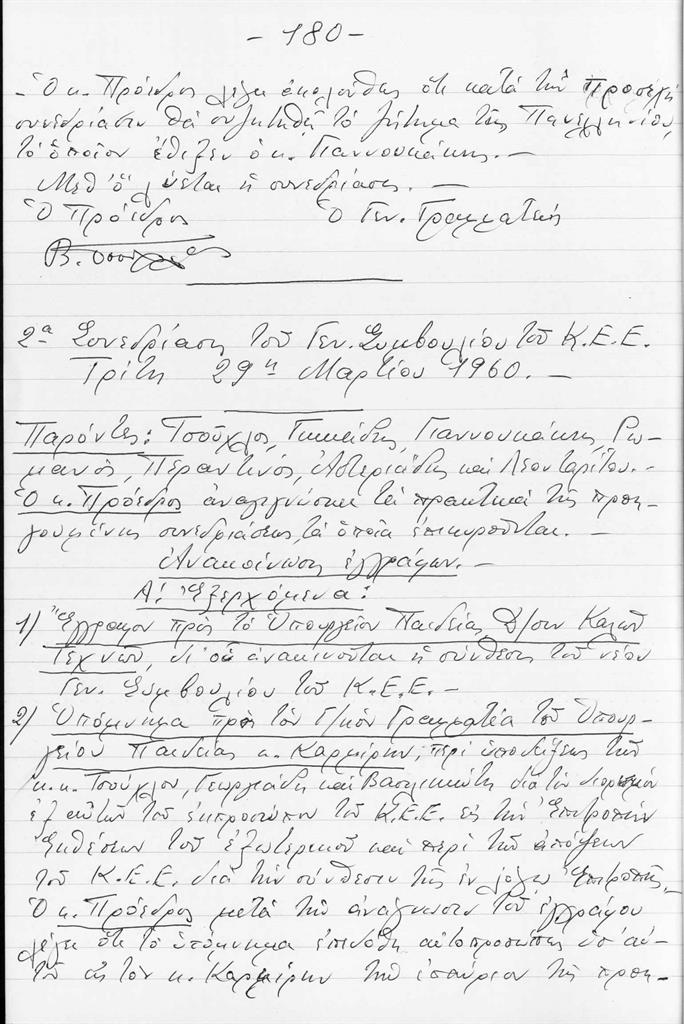 - 180 -
- Ὁ κ. Πρόεδρος λέγει ἀκολούθως ὅτι κατά τήν προσεχῆ
συνεδρίασιν θά συζητηθῇ τό ζήτημα τῆς Πανελληνίου,
τό ὁποῖον ἔθιξεν ὁ κ. Γιαννουκάκης. —
Μεθ' ὅ λύεται ἡ συνεδρίασις. —
Ὁ Πρόεδρος Ὁ Γεν. Γραμματεύς
Β.
2α Συνεδρίασις τοῦ Γεν. Συμβουλίου τοῦ Κ.Ε.Ε.
Τρίτη 29η Μαρτίου 1960. —
Παρόντες: Τσοῦχλος, Γιαννουκάκης, Ρω-
μανός, Περαντινός, Ἀστεριάδης καί Λεονταρίτου. -
Ὁ κ. Πρόεδρος ἀναγιγνώσκει τά πρακτικά τῆς προη-
γουμένης συνεδριάσεως τά ὁποῖα ἐπικυροῦνται. —
Ἀνακοίνωσις ἐγγράφων. -
Α! Ἐξερχόμενα:
1) Ἔγγραφον πρός τό Ὑπουργεῖον Παιδείας, Δ/σιν Καλῶν
Τεχνῶν, δι' οὗ ἀνακοινοῦται ἡ σύνθεσις τοῦ νέου
Γεν. Συμβουλίου τοῦ Κ.Ε.Ε. —
2) Ὑπόμνημα πρός τόν Γ/κόν Γραμματέα τοῦ Ὑπουρ-
γείου Παιδείας κ. Καρμίρην, περί ὑποδείξεως τῶν
κ.κ. Τσούχλου, Γεωργιάδη καί Βασιλικιώτη διά τόν διορισμόν
ἐξ αὐτῶν τοῦ ἐκπροσώπου τοῦ Κ.Ε.Ε. εἰς τήν Ἐπιτροπήν
Ἐκθέσεων τοῦ ἐξωτερικοῦ καί περί τῶν ἀπόψεων
τοῦ Κ.Ε.Ε. διά τήν σύνθεσιν τῆς ἐν λόγῳ Ἐπιτροπῆς. -
Ὁ κ. Πρόεδρος μετά τήν ἀνάγνωσιν τοῦ ἐγγράφου
λέγει ὅτι τό ὑπόμνημα ἐπεδόθη αὐτοπροσώπως ὑπ' αὐ-
τοῦ εἰς τόν κ. Καρμίρην τήν ἐπαύριον τῆς προη-